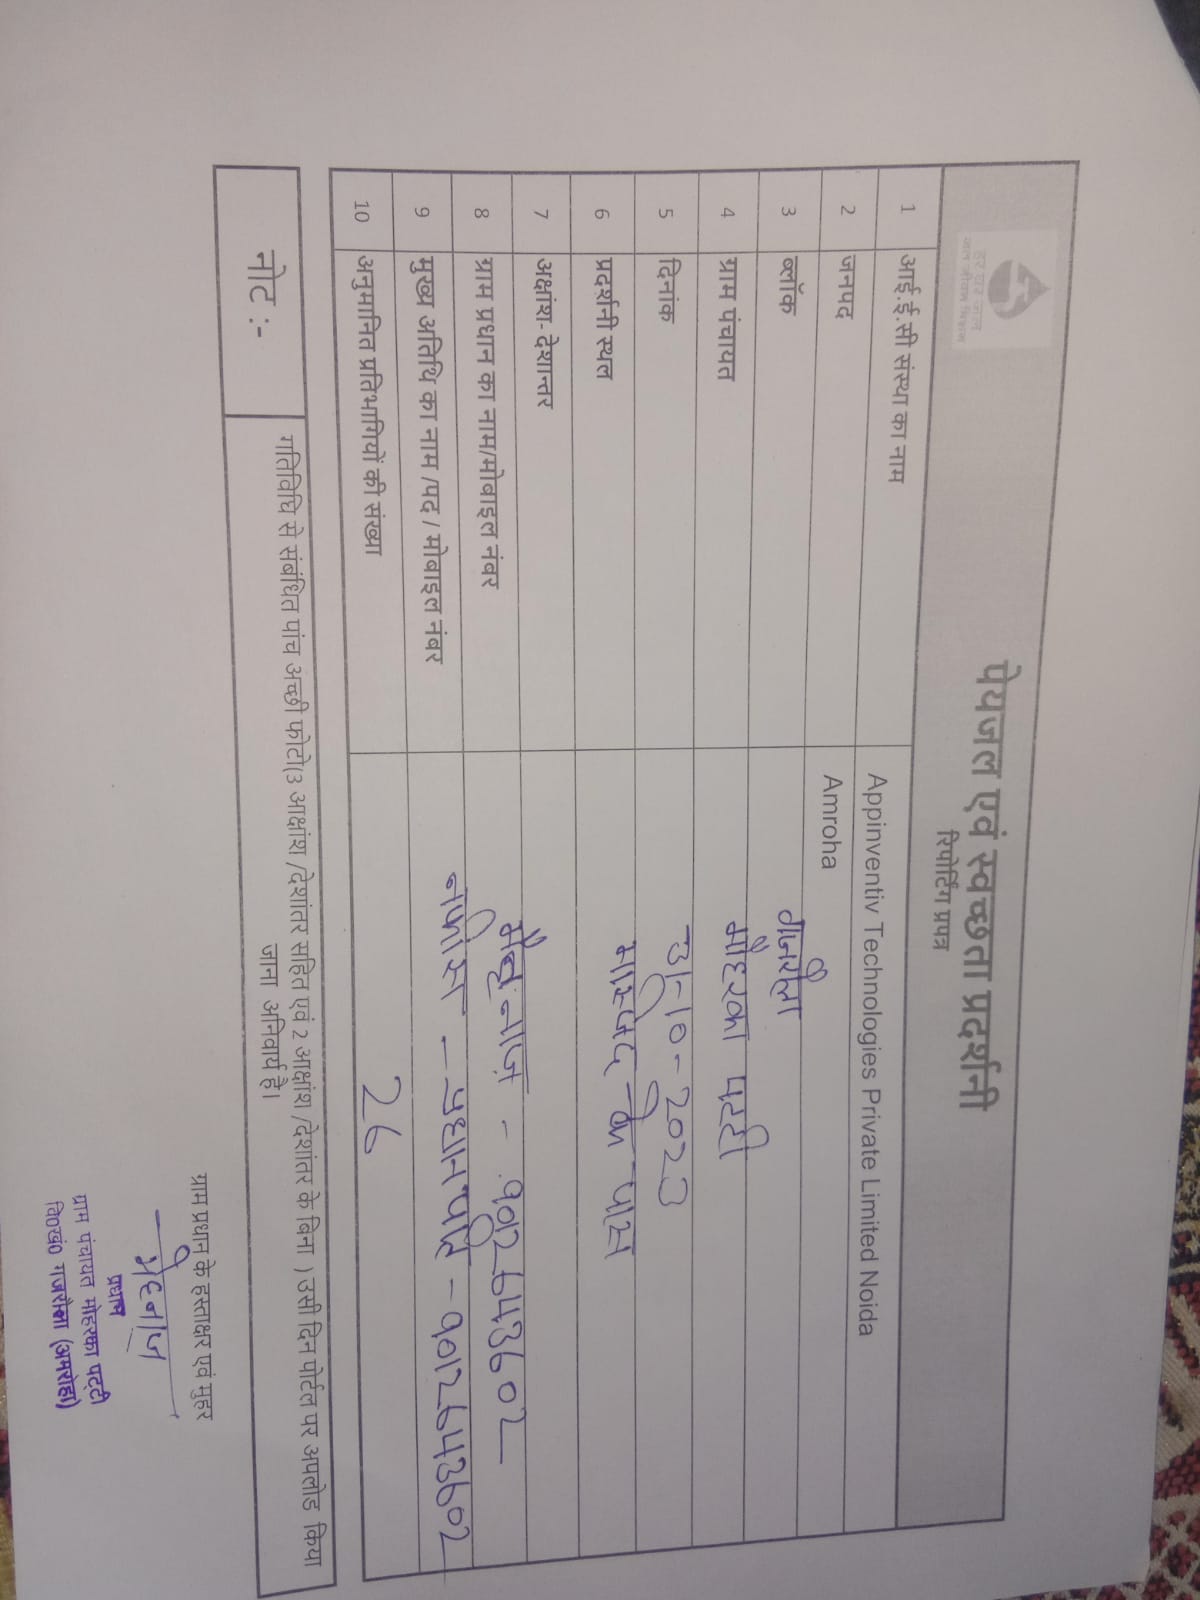 हर घर जल
जल जीवन मिशन
पेयजल एवं स्वच्छता प्रदर्शनी
रिपोर्टिंग प्रपत्र
1 आई.ई.सी संस्था का नाम Appinventiv Technologies Private Limited Noida
2 जनपद Amroha
3 ब्लॉक गजरौला
4 ग्राम पंचायत मोहरका पट्टी
5 दिनांक 31-10-2023
6 प्रदर्शनी स्थल मस्जिद के पास
7 अक्षांश- देशान्तर
8 ग्राम प्रधान का नाम/मोबाइल नंबर - 9012643602
9 मुख्य अतिथि का नाम /पद / मोबाइल नंबर - प्रधान पति - 9012643602
10 अनुमानित प्रतिभागियों की संख्या 26
नोट :- गतिविधि से संबंधित पांच अच्छी फोटो(3 आक्षांश /देशांतर सहित एवं 2 आक्षांश /देशांतर के बिना ) उसी दिन पोर्टल पर अपलोड किया
जाना अनिवार्य है।
ग्राम प्रधान के हस्ताक्षर एवं मुहर
प्रधान
ग्राम पंचायत मोहरका पट्टी
वि0खं0 गजरौला (अमरोहा)